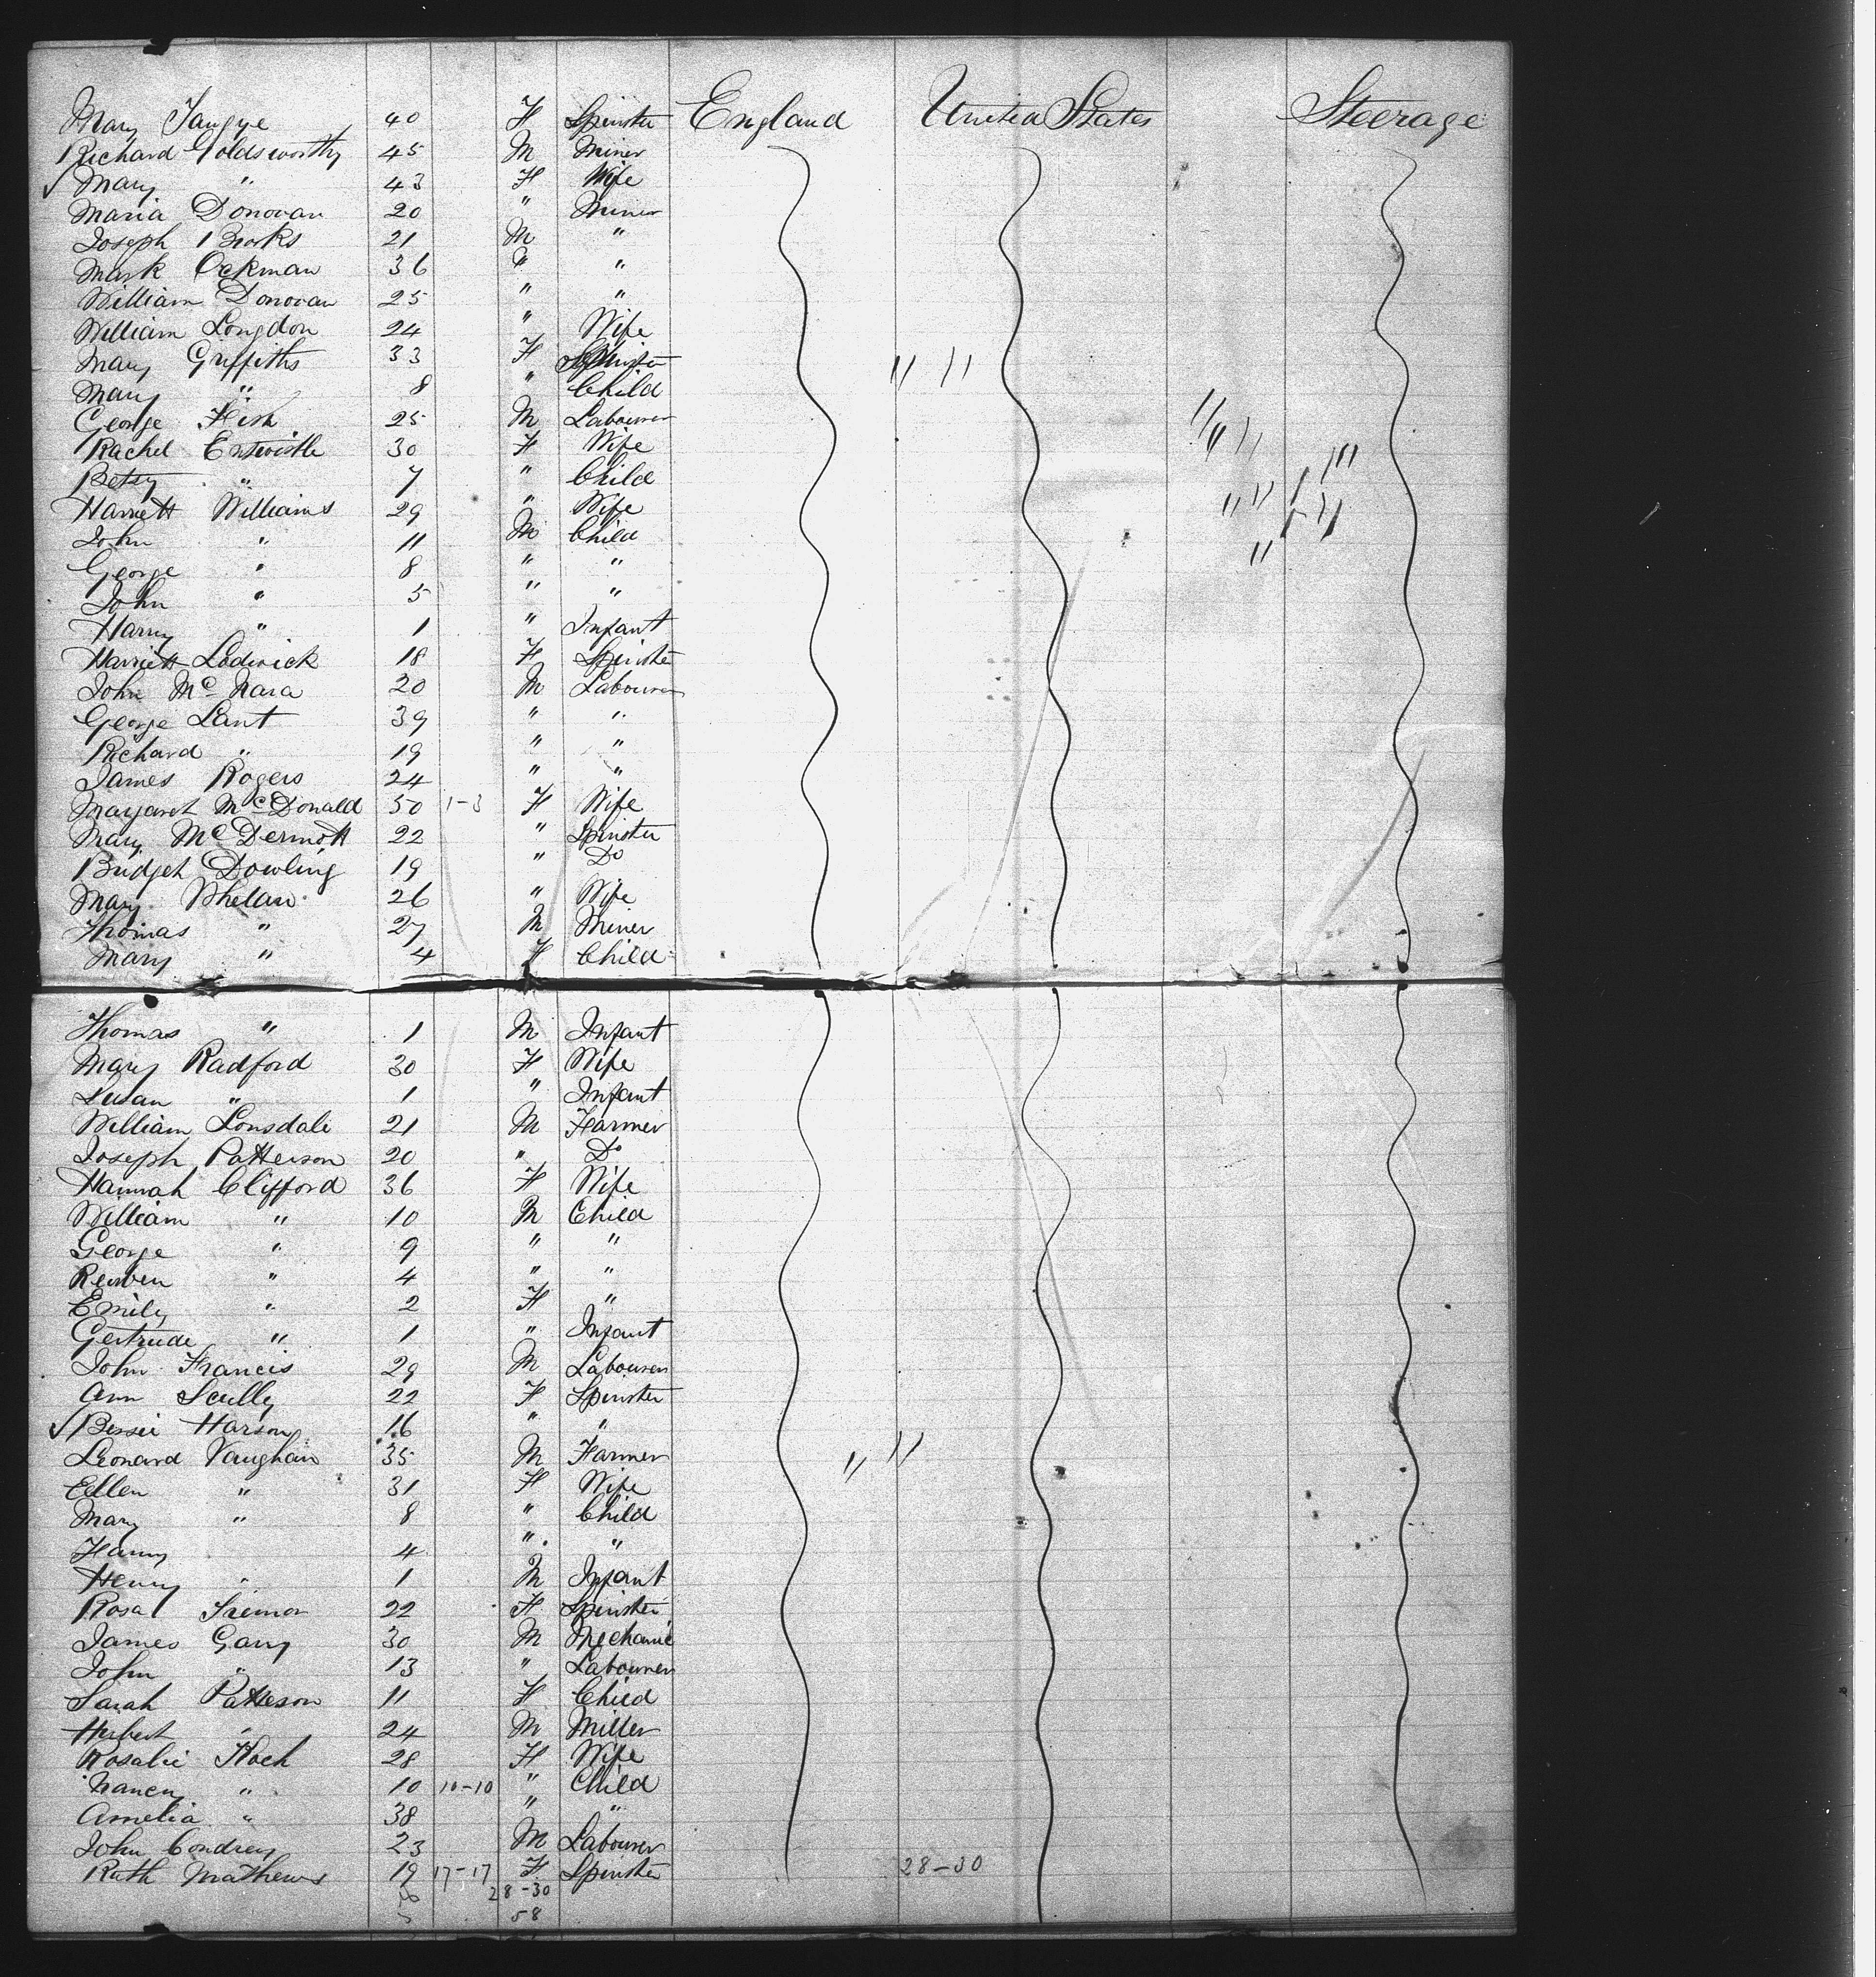 Mary Tangye 40 F Spinster England United States Steerage
Richard Goldsworthy 45 M Miner
✓ Mary " 43 F Wife
Maria Donovan 20 " Miner
Joseph Brooks 21 M "
Mark Ockman 36 " "
William Donovan 25 " "
William Longdon 24 " Wife
Mary Griffiths 33 F Spinster
Mary " 8 " Child
George Fish 25 M Labourer
Rachel Entwistle 30 F Wife
Betsy " 7 " Child
Harriett Williams 29 " Wife
John " 11 M Child
George " 8 " "
John " 5 " "
Harry " 1 " Infant
Harriett Lodwick 18 F Spinster
John McNara 20 M Labourer
George Lant 39 " "
Richard " 19 " "
James Rogers 24 " "
Margaret McDonald 50 1-3 F Wife
Mary McDermott 22 " Spinster
Bridget Dowling 19 " Do
Mary Phelan 26 " Wife
Thomas " 27 M Miner
Mary " 4 F Child
Thomas " 1 M Infant
Mary Radford 30 F Wife
Susan " 1 " Infant
William Lonsdale 21 M Farmer
Joseph Patterson 20 " Do
Hannah Clifford 36 F Wife
William " 10 M Child
George " 9 " "
Reuben " 4 " "
Emily " 2 F "
Gertrude " 1 " Infant
John Francis 29 M Labourer
Ann Scully 22 F Spinster
✓ Bessie Harson 16 " "
Leonard Vaughan 35 M Farmer
Ellen " 31 F Wife
Mary " 8 " Child
Fanny 4 " "
Henry " 1 M Infant
Rosa 22 F Spinster
James Gary 30 M Mechanic
John " 13 " Labourer
Sarah Patteson 11 F Child
Herbert " 24 M Miller
Rosalie Koch 28 F Wife
Nancy " 10 10-10 " Child
Amelia " 38 " "
John Condrey 23 M Labourer
Ruth Mathews 19 17-17 F Spinster 28-30
28-30
58